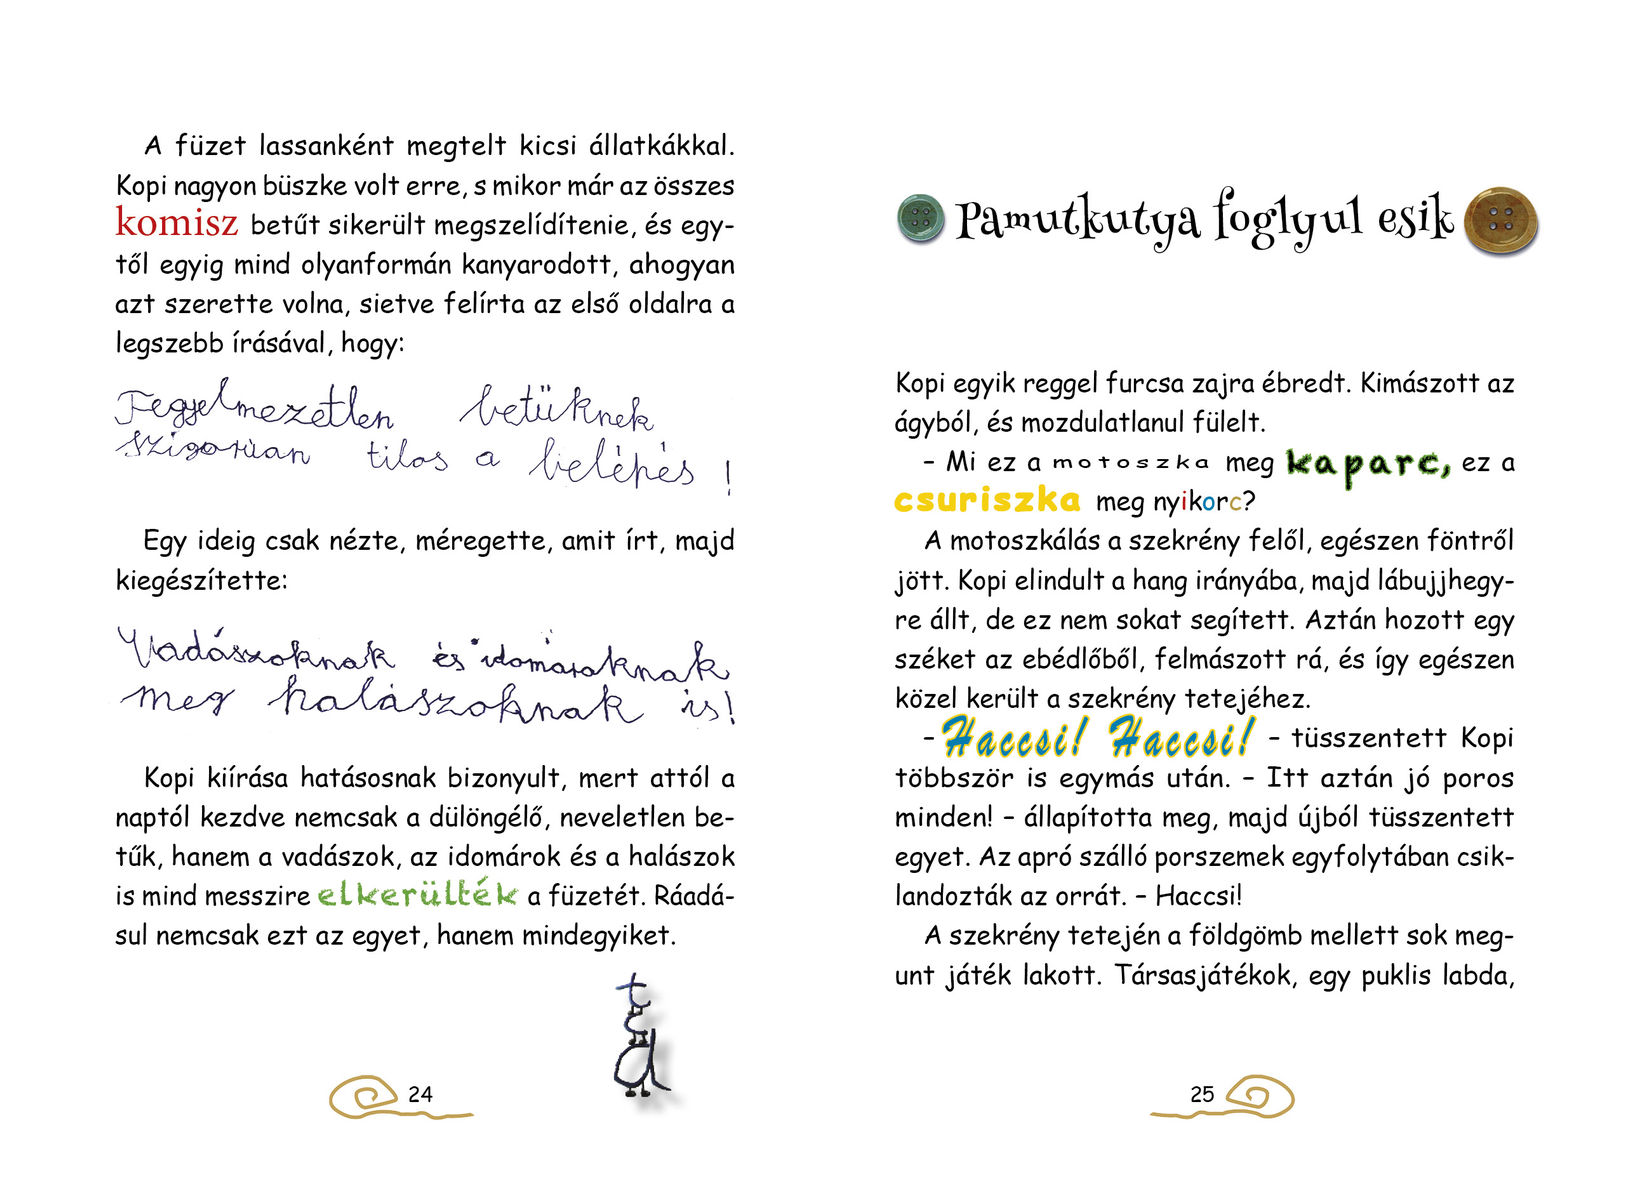 A füzet lassanként megtelt kicsi állatkákkal.
Kopi nagyon büszke volt erre, s mikor már az összes
komisz betűt sikerült megszelídítenie, és egy-
től egyig mind olyanformán kanyarodott, ahogyan
azt szerette volna, sietve felírta az első oldalra a
legszebb írásával, hogy:
Fegyelmezetlen betűknek
szigorúan tilos a belépés!
Egy ideig csak nézte, méregette, amit írt, majd
kiegészítette:
Vadászoknak és idomároknak
meg halászoknak is!
Kopi kiírása hatásosnak bizonyult, mert attól a
naptól kezdve nemcsak a dülöngélő, neveletlen be-
tűk, hanem a vadászok, az idomárok és a halászok
is mind messzire elkerülték a füzetét. Ráadá-
sul nemcsak ezt az egyet, hanem mindegyiket.
t
c
a
24
Pamutkutya foglyul esik
Kopi egyik reggel furcsa zajra ébredt. Kimászott az
ágyból, és mozdulatlanul fülelt.
– Mi ez a motoszka meg kaparc, ez a
csuriszka meg nyikorc?
A motoszkálás a szekrény felől, egészen föntről
jött. Kopi elindult a hang irányába, majd lábujjhegy-
re állt, de ez nem sokat segített. Aztán hozott egy
széket az ebédlőből, felmászott rá, és így egészen
közel került a szekrény tetejéhez.
– Haccsi! Haccsi! – tüsszentett Kopi
többször is egymás után. – Itt aztán jó poros
minden! – állapította meg, majd újból tüsszentett
egyet. Az apró szálló porszemek egyfolytában csik-
landozták az orrát. – Haccsi!
A szekrény tetején a földgömb mellett sok meg-
unt játék lakott. Társasjátékok, egy puklis labda,
25